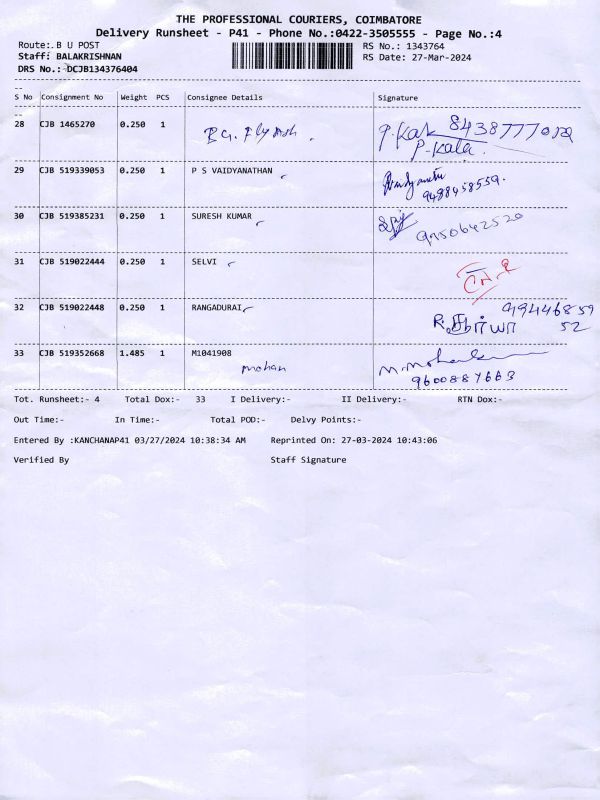 THE PROFESSIONAL COURIERS, COIMBATORE
Delivery Runsheet - P41 - Phone No.:0422-3505555 - Page No.:4
Route:.B U POST RS No.: 1343764
Staff: BALAKRISHNAN RS Date: 27-Mar-2024
DRS No.: DCJB134376404
S No Consignment No Weight PCS Consignee Details Signature
28 CJB 1465270 0.250 1
P. Kala
29 CJB 519339053 0.250 1 P S VAIDYANATHAN
9488458559.
30 CJB 519385231 0.250 1 SURESH KUMAR
9950642520
31 CJB 519022444 0.250 1 SELVI
32 CJB 519022448 0.250 1 RANGADURAI 919446859
R. 52
33 CJB 519352668 1.485 1 M1041908
mohan 9600887663
Tot. Runsheet:- 4 Total Dox:- 33 I Delivery:- II Delivery:- RTN Dox:-
Out Time:- In Time:- Total POD:- Delvy Points:-
Entered By :KANCHANAP41 03/27/2024 10:38:34 AM Reprinted On: 27-03-2024 10:43:06
Verified By Staff Signature